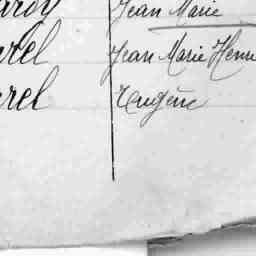 Jean Marie
rel Jean Marie Henri
rel Eugène